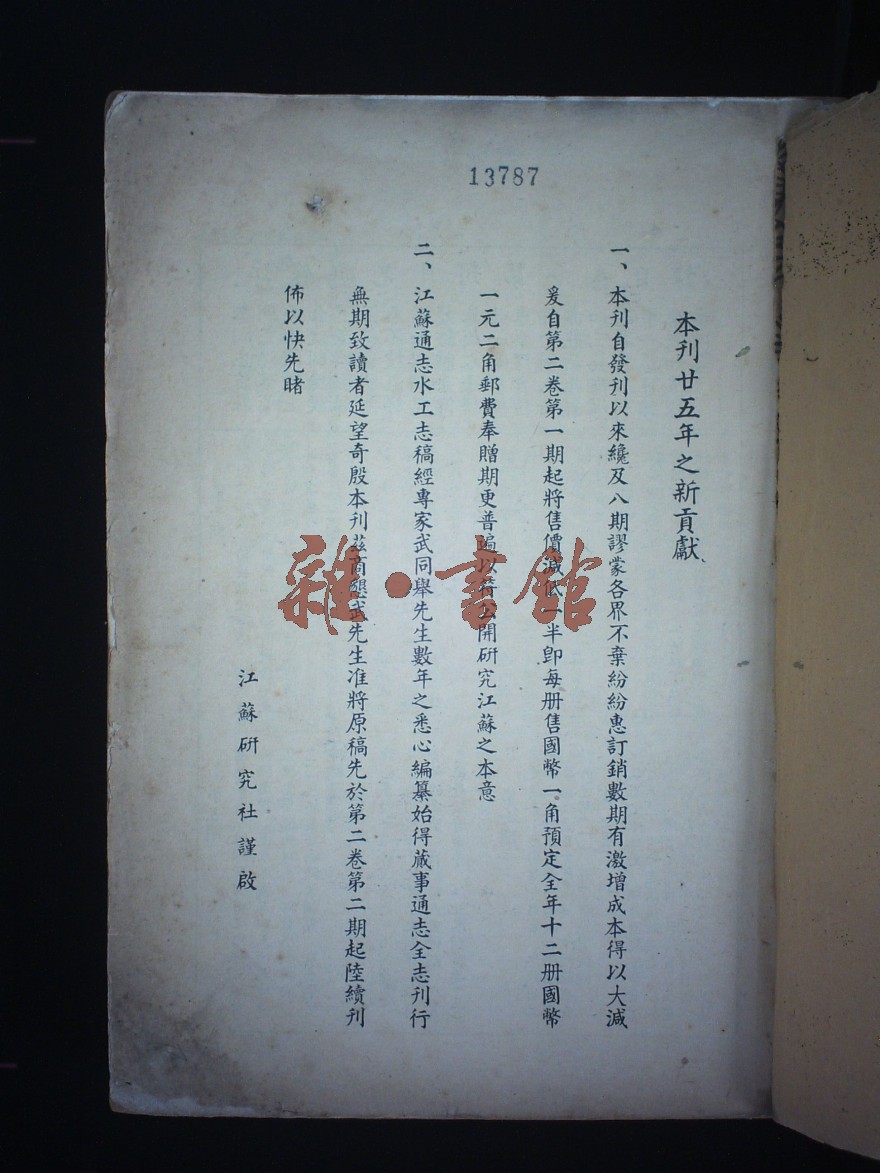 13787
本刊廿五年之新貢獻、
一、本刊自發刊以來纔及八期謬蒙各界不棄紛紛惠訂銷數期有激增成本得以大減
爰自第二卷第一期起將售價減低一半卽每册售國幣一角預定全年十二册國幣
一元二角郵費奉贈期更普遍以符公開硏究江蘇之本意
二、江蘇通志水工志稿經專家武同舉先生數年之悉心編纂始得蕆事通志全志刊行
無期致讀者延望奇殷本刊茲商懇武先生准將原稿先於第二卷第二期起陸續刊
佈以快先睹
江蘇硏究社謹啟
雜·書館